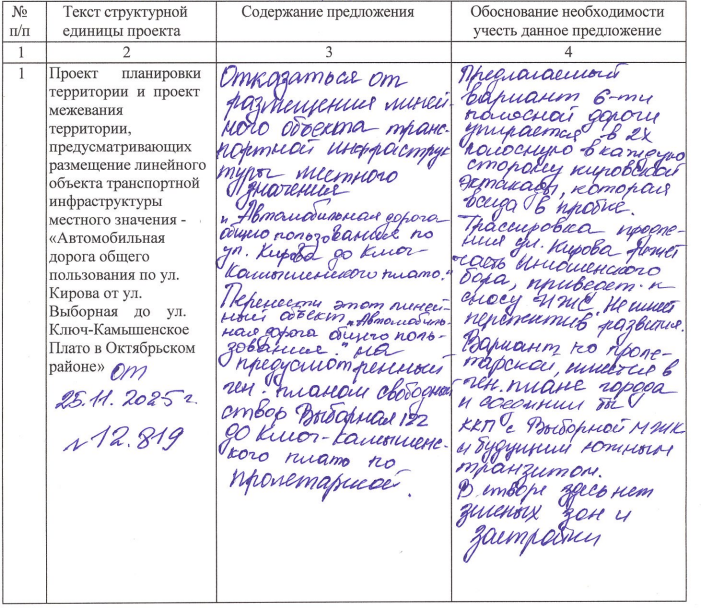 № п/п
Текст структурной единицы проекта
Содержание предложения
Обоснование необходимости учесть данное предложение
1
2
3
4
1
Проект планировки
территории и проект
межевания
территории,
предусматривающих
размещение линейного
объекта транспортной
инфраструктуры
местного значения -
«Автомобильная
дорога общего
пользования по ул.
Кирова от ул.
Выборная до ул.
Ключ-Камышенское
Плато в Октябрьском
районе» от
25.11.2025 г.
№12.819
Отказаться от
размещения линей-
ного объекта транс-
портной инфраструк
туры местного
значения
"Автомобильная дорога
общего пользования по
ул. Кирова до Ключ-
Камышенского плато."
Перенести этот линей-
ный объект "Автомобиль-
ная дорога общего поль-
зования." на
предусмотренный
ген. планом свободный
створ Выборная 122
до Ключ-Камышенс-
кого плато по
пролетарской.
Предлагаемый
вариант 6-ти
полосной дороги
упирается в 2х
полосную в каждую
сторону кировской
эстакады, которая
всегда в пробке.
Трассировка продле-
ния ул. Кирова режет
часть Инюшенского
бора, приведет к
сносу ИЖС. Не имеет
перспектив развития.
Вариант по проле-
тарской, имеется в
ген. плане города
и соединил бы
ККП с Выборной МЖК
и будущим южным
транзитом.
В створе здесь нет
зеленых зон и
застройки